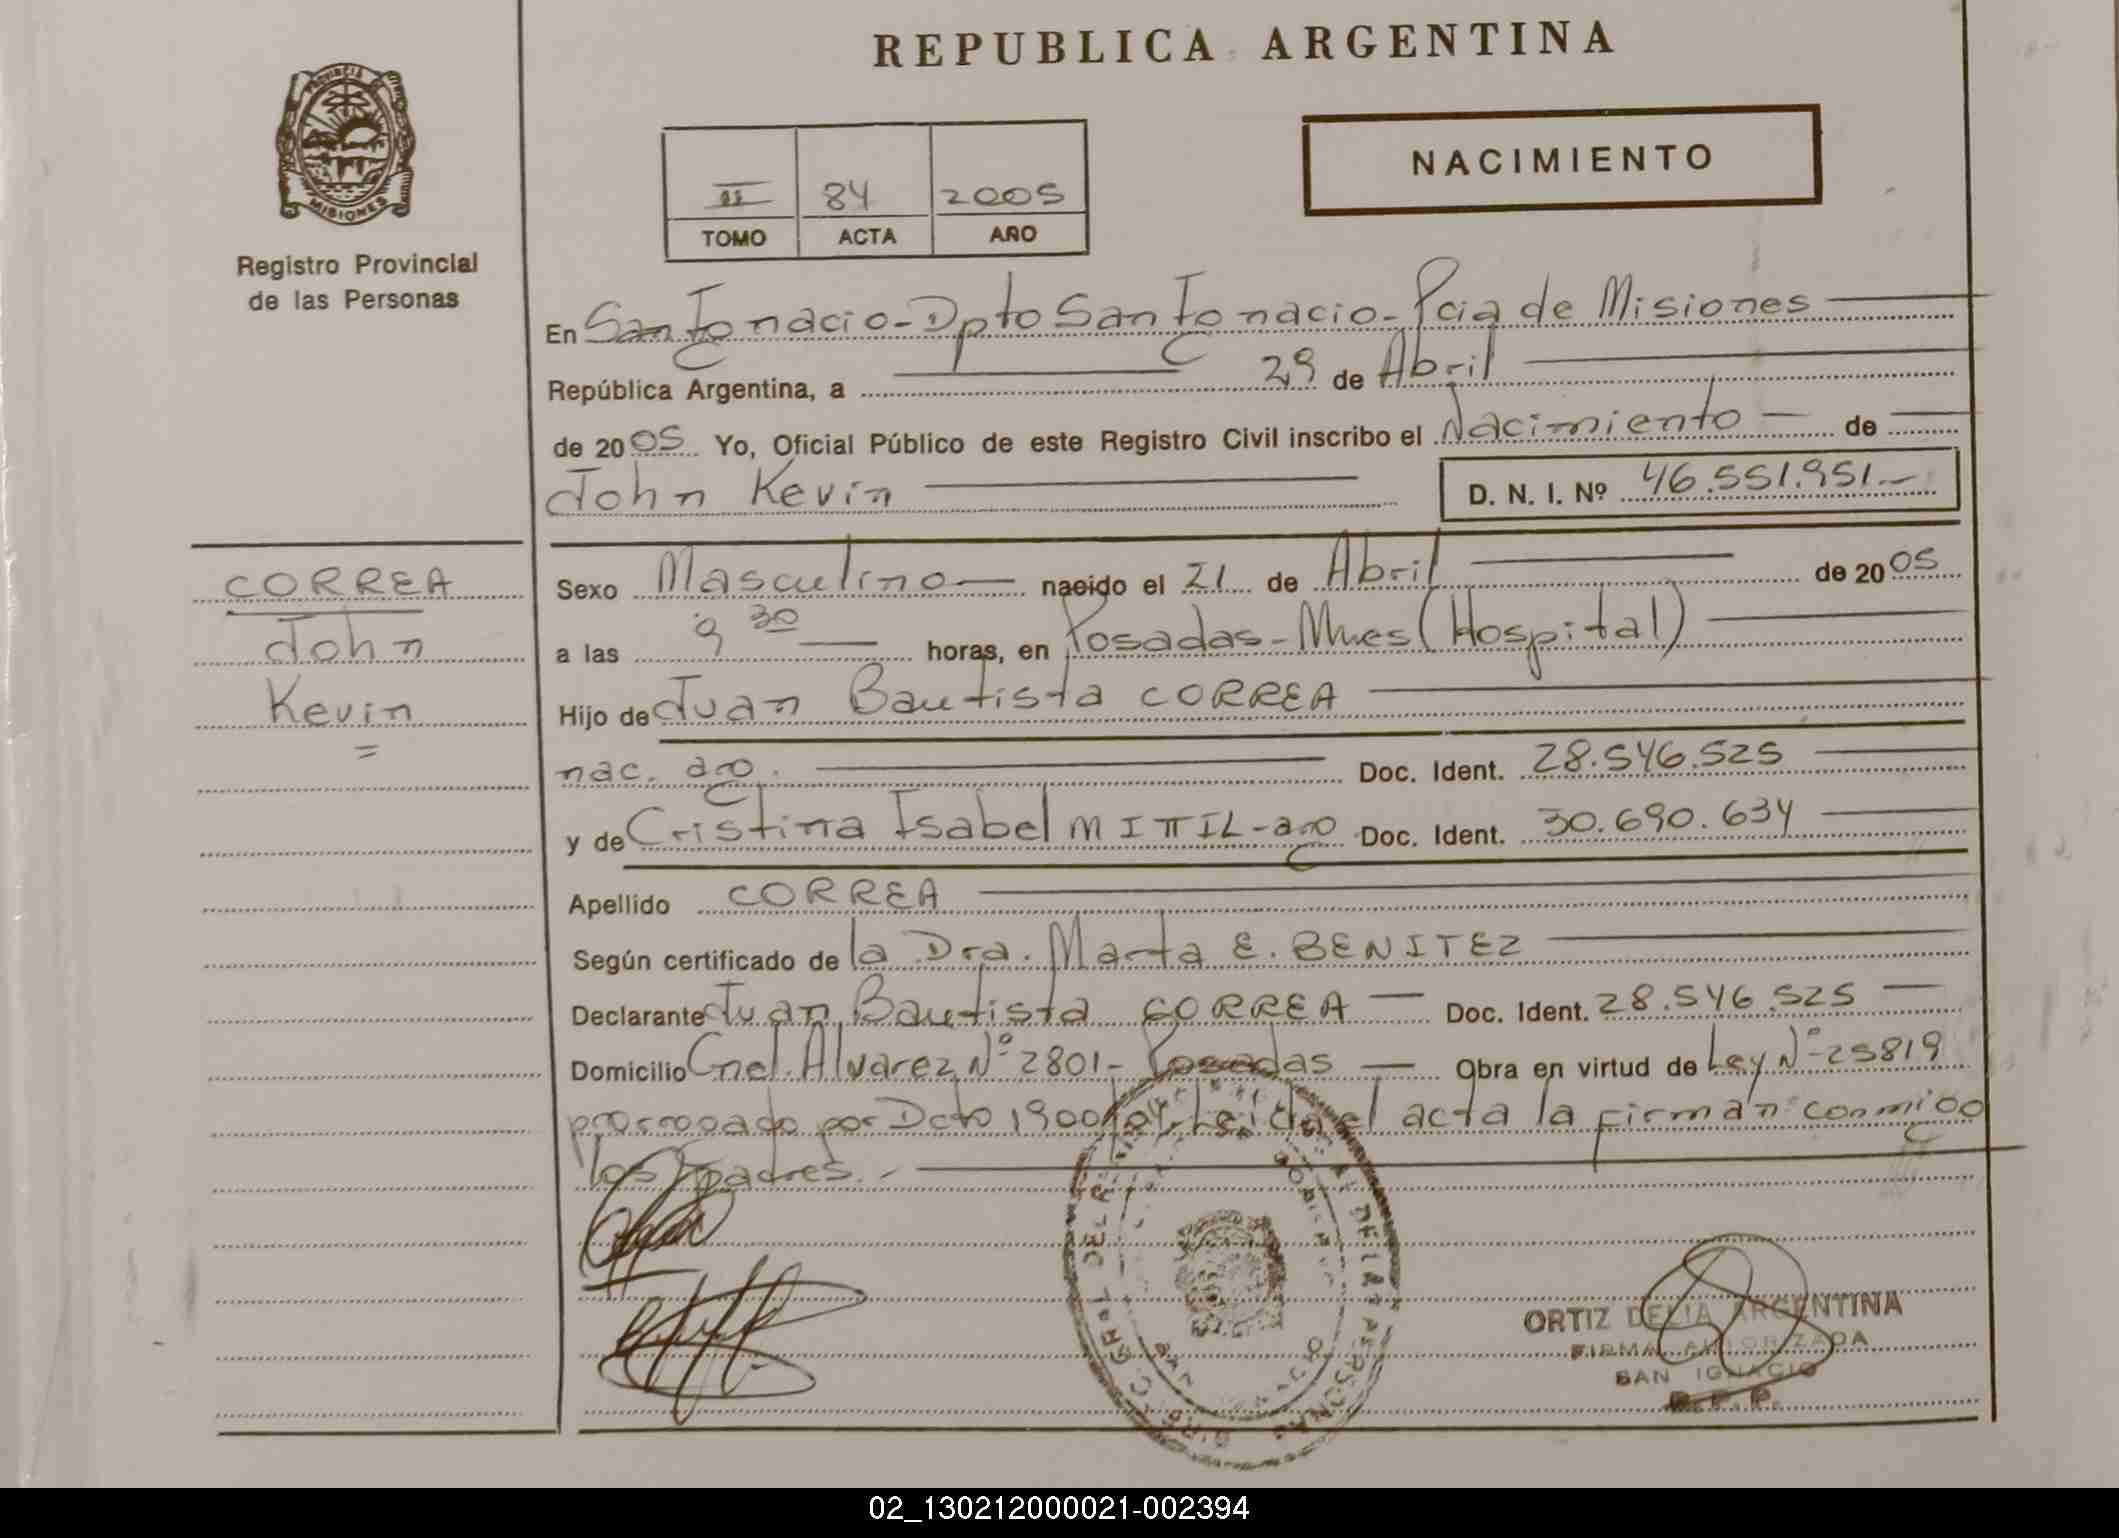 REPUBLICA ARGENTINA
PROVINCIA
MISIONES
Registro Provincial
de las Personas
NACIMIENTO
II 84 2005
TOMO ACTA AÑO
En San Ignacio - Dpto San Ignacio - Pcia de Misiones
República Argentina, a 29 de Abril
de 2005 Yo, Oficial Público de este Registro Civil inscribo el Nacimiento de
John Kevin D. N. I. Nº 46.551.951.-
CORREA
John
Kevin
Sexo Masculino nacido el 21 de Abril de 2005
a las 9 30 horas, en Posadas - Mnes (Hospital)
Hijo de Juan Bautista CORREA
nac. arg. Doc. Ident. 28.546.525
y de Cristina Isabel MITTIL - arg Doc. Ident. 30.690.634
Apellido CORREA
Según certificado de la Dra. Marta E. BENITEZ
Declarante Juan Bautista CORREA Doc. Ident. 28.546.525
Domicilio Cnel. Alvarez Nº 2801 - Posadas Obra en virtud de Ley Nº 25819
prorrogado por Dcto 1900/04. Leida el acta la firman conmigo
los padres.-
ORTIZ DELIA ARGENTINA
FIRMA AUTORIZADA
SAN IGNACIO
R.P.P.
02_130212000021-002394